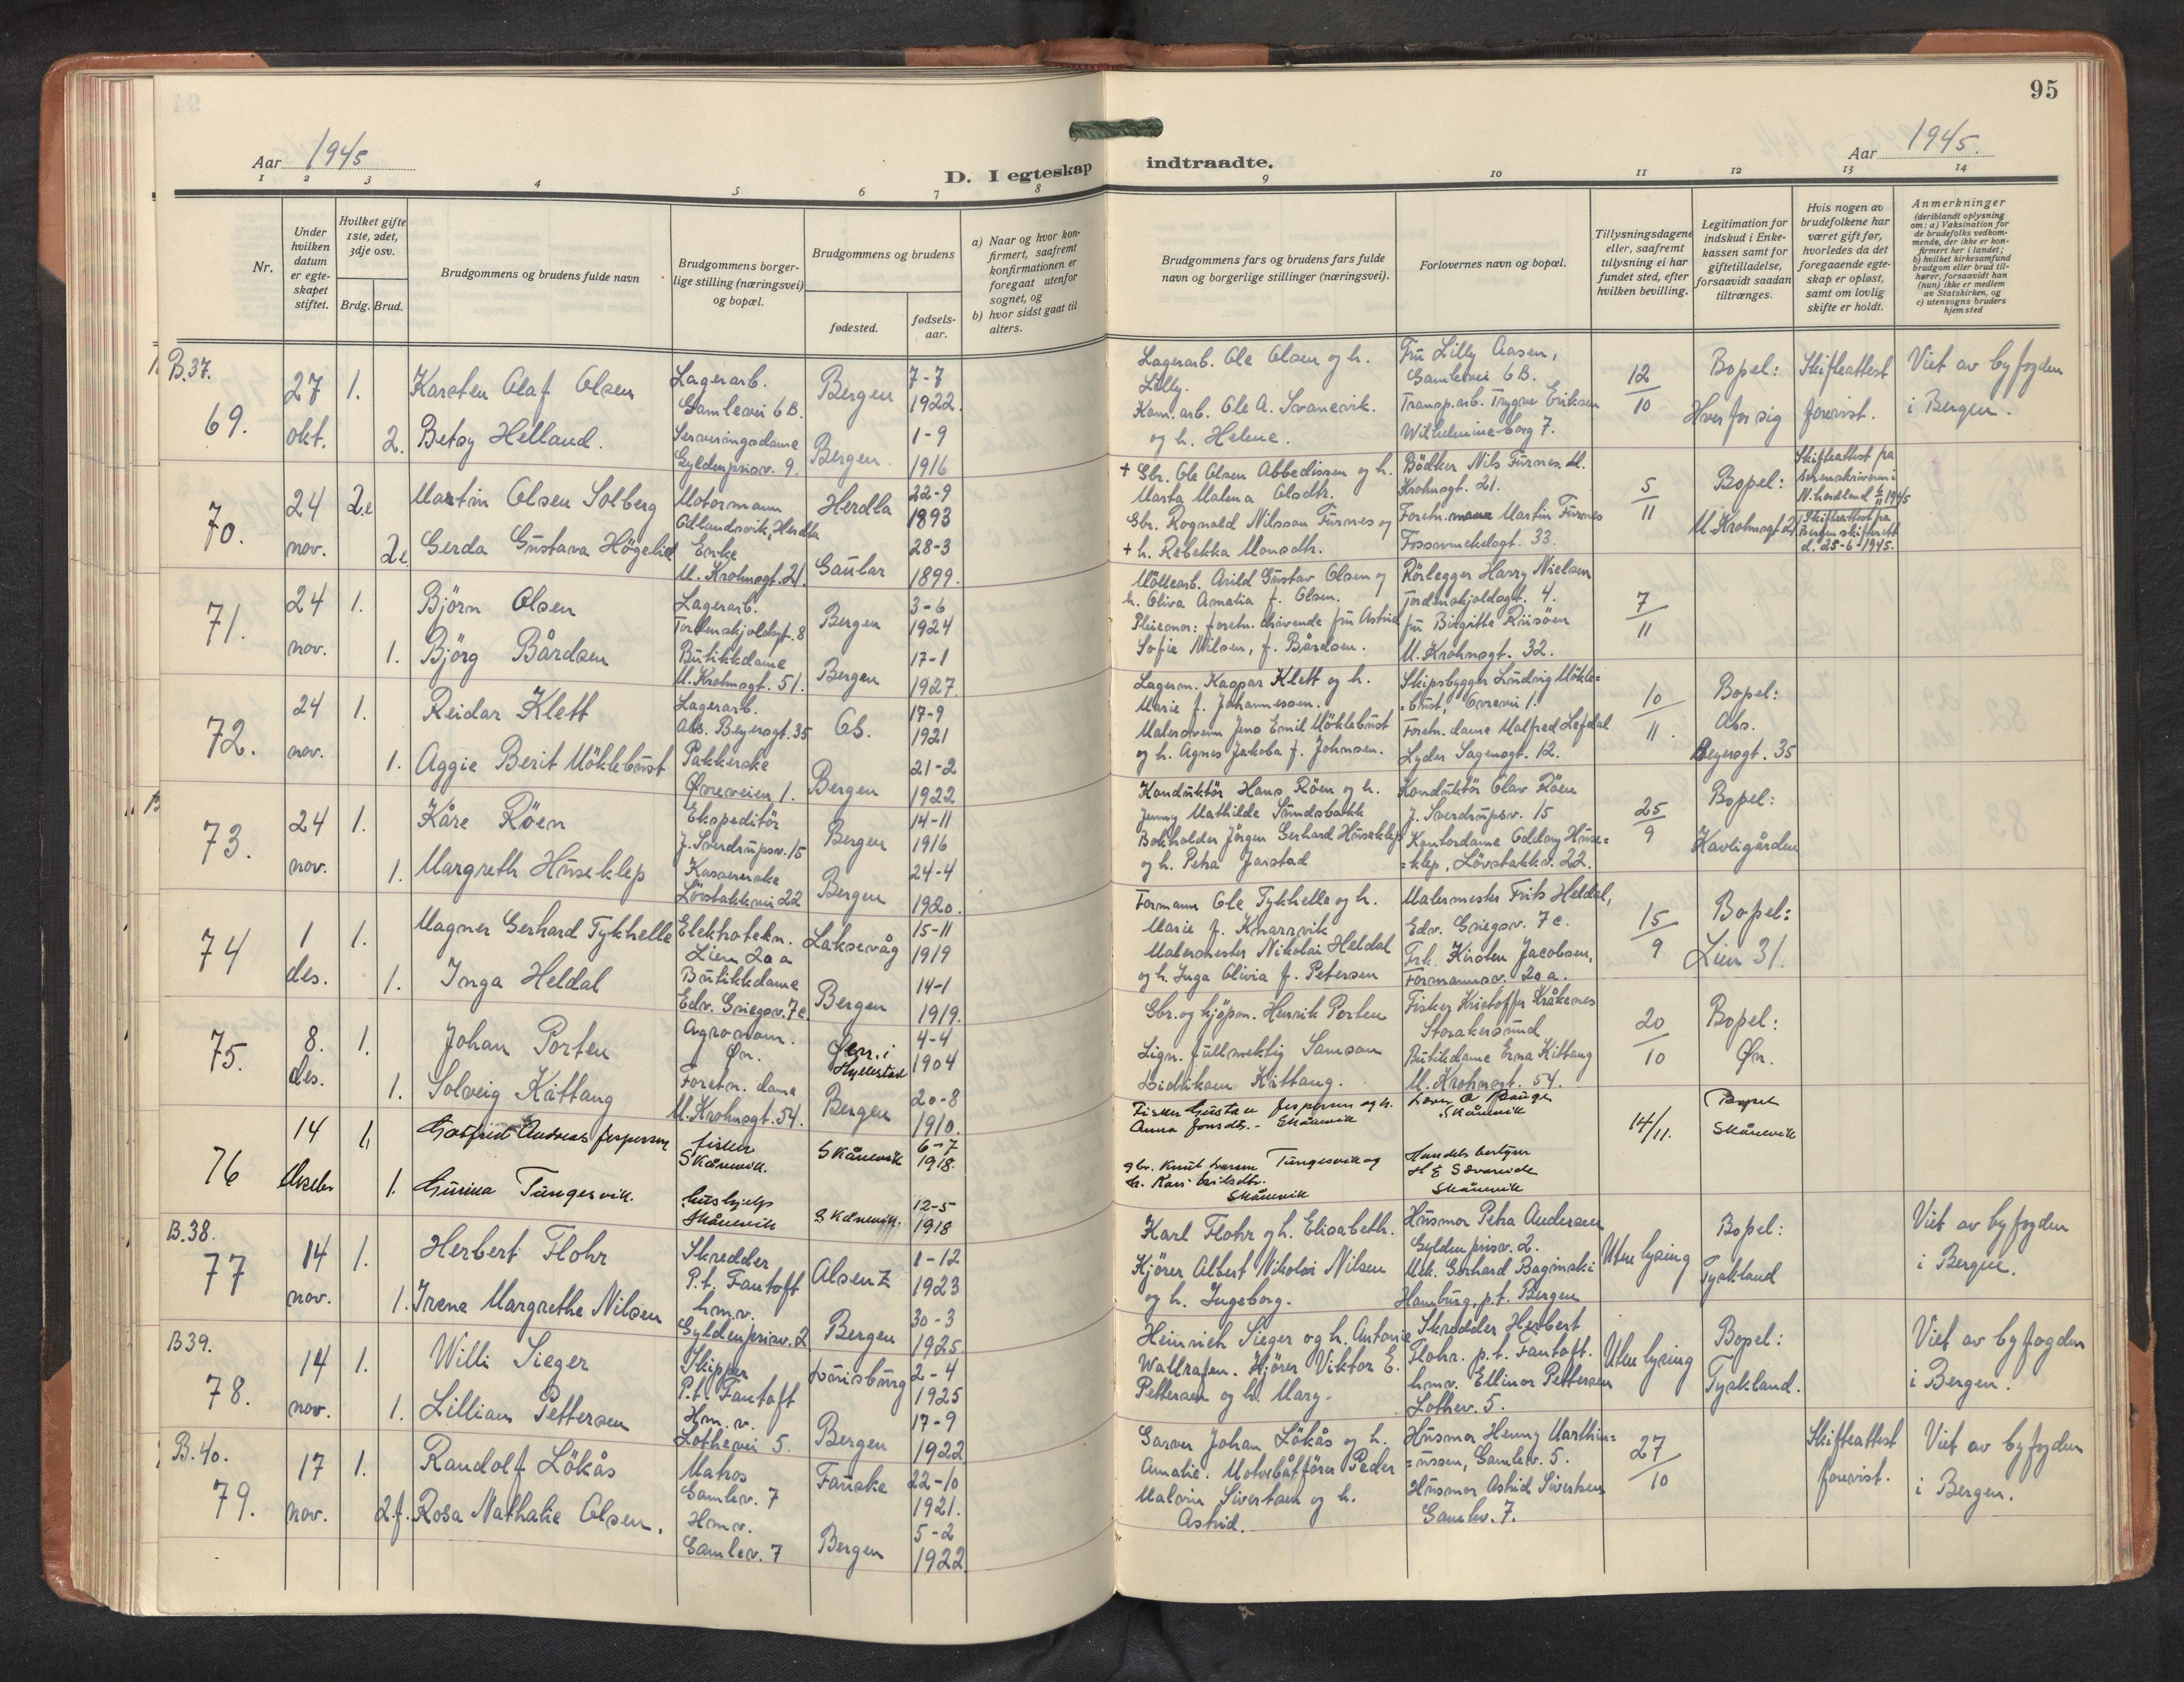 95
Aar 1945
D. I egteskap indtraadte.
Aar 1945.
1 2 3 4 5 6 7 8 9 10 11 12 13 14
Nr.
Under hvilken datum er egteskapet stiftet.
Hvilket gifte 1ste, 2det, 3dje osv.
Brdg. Brud.
Brudgommens og brudens fulde navn
Brudgommens borgerlige stilling (næringsvei) og bopæl.
Brudgommens og brudens
fødested.
fødselsaar.
a) Naar og hvor konfirmert, saafremt konfirmationen er foregaat utenfor sognet, og
b) hvor sidst gaat til alters.
Brudgommens fars og brudens fars fulde navn og borgerlige stillinger (næringsvei).
Forlovernes navn og bopæl.
Tillysningsdagene eller, saafremt tillysning ei har fundet sted, efter hvilken bevilling.
Legitimation for indskud i Enkekassen samt for giftetilladelse, forsaavidt saadan tiltrænges.
Hvis nogen av brudefolkene har været gift før, hvorledes da det foregaaende egteskap er opløst, samt om lovlig skifte er holdt.
Anmerkninger
(deriblandt oplysning om: a) Vaksination for de brudefolks vedkommende, der ikke er konfirmert her i landet; b) hvilket kirkesamfund brudgom eller brud tilhører, forsaavidt han (hun) ikke er medlem av Statskirken, og c) utensogns bruders hjemsted
B.37.
69.
27 okt.
1.
Karsten Olaf Olsen
Lagerarb.
Gamlevei 6B.
Bergen
7-7
1922.
2. Betsy Helland.
Serveringsdame
Gyldenprisv. 9.
Bergen.
1-9
1916
Lagerarb. Ole Olsen og h.
Lilly.
Kom. arb. Ole A. Svanevik.
og h. Helene.
Fru Lilly Aasen,
Gamlevei 6B.
Transp.arb. Trygve Eriksen
Wilhelmineborg 7.
12/10
Bopel:
Hver for sig
Skifteattest
forevist.
Viet av byfogden
i Bergen.
70.
24 nov.
2.e
Martin Olsen Solberg
Motormann
Adlandsvik, Herdla
Herdla
22-9
1893
2e. Gerda Gustava Högelid
Enke
M. Krohnsgt. 21.
Gaular
28-3
1899.
+ Gbr. Ole Olsen Abbedissen og h.
Marta Malena Olsdtr.
Gbr. Rognald Nilsson Furnes og
+ h. Rebekka Monsdtr.
Bödker Nils Furnes. M.
Krohnsgt. 21.
Foretn.mann Martin Furnes
Fosswinckelsgt. 33.
5/11
Bopel:
M. Krohnsgt. 21.
Skifteattest fra
sorenskriveren i
N.hordland 1945
Skifteattest fra
Bergen skifterett
d. 25-6-1945.
71.
24 nov.
1.
Björn Olsen
Lagerarb.
Tordenskjoldsgt. 8
Bergen
3-6
1924
1. Björg Bårdsen
Butikkdame
M. Krohnsgt. 51.
Bergen
17-1
1927.
Möllearb. Arild Gustav Olsen og
h. Oliva Amalia f. Olsen.
Pleiemor: foretn. drivende fru Astrid
Sofie Nilsen, f. Bårdsen.
Rörlegger Harry Nielsen
Tordenskjoldsgt. 4.
fru Birgitte Riisöen
M. Krohnsgt. 32.
7/11
72.
24 nov.
1.
Reidar Klett
Lagerarb.
Abs. Beyersgt. 35
Os.
17-9
1921
1. Aggie Berit Möklebust
Pakkerske
Øvreveien 1.
Bergen
21-2
1922
Lagerm. Kaspar Klett og h.
Marie f. Johannessen.
Malersvenn Jens Emil Möklebust
og h. Agnes Jakoba f. Johnsen.
Skipsbygger Ludvig Mökle=
=bust, Övrevei 1.
Foretn. dame Malfred Lofdal
Lyder Sagensgt. 12.
10/11.
Bopel:
Abs.
Beyersgt. 35
73.
24 nov.
1.
Kåre Röen
Ekspeditör
J. Sverdrupsv. 15
Bergen
14-11
1916
1. Margreth Huseklep
Kassererske
Lövstakkvei 22
Bergen
24-4
1920.
Konduktör Hans Röen og h.
Jenny Mathilde Sundsbakk
Bokholder Jörgen Gerhard Huseklep
og h. Petra Jarstad
Konduktör Olav Röen
J. Sverdrupsv. 15
Kontordame Oddny Huse=
=klep, Lövstakkv. 22.
25/9
Bopel:
Kavligården
74
1 des.
1.
Magner Gerhard Tykhelle
Elektrotekn.
Lien 20a
Laksevåg
15-11
1919
1. Inga Heldal
Butikkdame
Edv. Griegsv. 7c.
Bergen
14-1
1919.
Formann Ole Tykhelle og h.
Marie f. Knarrvik
Malermester Nikolai Heldal
og h. Inga Olivia f. Petersen
Malermester Frits Heldal,
Edv. Griegsv. 7c.
Frk. Kirsten Jacobsen,
Formannsv. 20a.
15/9
Bopel:
Lien 31.
75.
8. des.
1.
Johan Porten
Agronom.
Øn.
Øen i
Hyllestad
4-4
1904
1. Solveig Kittang
Foretn. dame
M. Krohnsgt. 54.
Bergen
20-8
1910.
Gbr. og kjöpm. Henrik Porten
Lign. fullmektig Samson
Didriksen Kittang.
Fisker Kristoffer Kråkenes
Storakersund
Butikdame Erna Kittang
M. Krohnsgt. 54.
20/10
Bopel:
Øn.
76
14
1.
Gotfred Andreas Jespersen
fisker
Skånevik.
Skånevik
6-7
1918.
1. Gurina Tungesvik.
hushjelp
Skånevik
Skånevik.
12-5
1918
Fisker Gustav Jespersen og h.
Anna Jonsdtr. - Skånevik
gbr. Knut Larsen Tungesvik og
h. Kari
Skånevik
Skånevik
Handelsbestyrer
Skånevik
14/11.
Bopel
Skånevik
B.38.
77
14 nov.
1.
Herbert Flohr
Skredder
P.t. Fantoft
Alsenz
1-12
1923
1. Irene Margrethe Nilsen
hmv.
Gyldenprisv. 2
Bergen
30-3
1925.
Karl Flohr og h. Elisabeth.
Kjörer Albert Nikolai Nilsen
og h. Ingeborg.
Husmor Petra Andersen
Gyldenprisv. 2.
Mek. Gerhard Baginski
Hamburg, p.t. Bergen
Uten lysing
Bopel:
Tyskland
Viet av byfogden
i Bergen.
B39.
78.
14 nov.
1.
Willi Sieger
Skipper
P.t. Fantoft
Duisburg
2-4
1925
1. Lillian Pettersen
Hm. v.
Lothevei 5.
Bergen
17-9
1922
Heinrich Sieger og h. Antonie
Wallrafen. Kjörer Viktor E.
Pettersen og h. Mary.
Skredder Herbert
Flohr. p.t. Fantoft.
hmv. Ellinor Pettersen
Lothev. 5.
Uten lysing
Bopel:
Tyskland.
Viet av byfogden
i Bergen.
B.40.
79.
17 nov.
1.
Randolf Lökås
Matros
Gamlev. 7
Fauske
22-10
1921.
2.f. Rosa Nathalie Olsen.
Hmv.
Gamlev. 7
Bergen
5-2
1922.
Garver Johan Lökås og h.
Amalie. Motorbåtförer Peder
Malvin Sivertsen og h.
Astrid.
Husmor Henny Marthin=
=ussen, Gamlev. 5.
Husmor Astrid Sivertsen
Gamlev. 7.
27/10
Skifteattest
forevist.
Viet av byfogden
i Bergen.